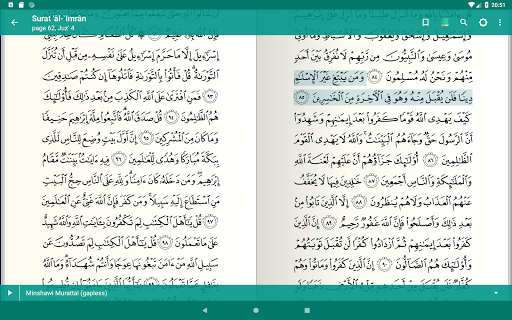 20:51
Surat 'āl-`Imrān
page 62, Juz' 4
وَإِسْمَٰعِيلَ وَإِسْحَٰقَ وَيَعْقُوبَ وَٱلْأَسْبَاطِ وَمَآ أُوتِىَ
مُوسَىٰ وَعِيسَىٰ وَٱلنَّبِيُّونَ مِن رَّبِّهِمْ لَا نُفَرِّقُ بَيْنَ أَحَدٍ
مِّنْهُمْ وَنَحْنُ لَهُۥ مُسْلِمُونَ ٨٤ وَمَن يَبْتَغِ غَيْرَ ٱلْإِسْلَٰمِ
دِينًا فَلَن يُقْبَلَ مِنْهُ وَهُوَ فِى ٱلْءَاخِرَةِ مِنَ ٱلْخَٰسِرِينَ ٨٥
كَيْفَ يَهْدِى ٱللَّهُ قَوْمًا كَفَرُوا۟ بَعْدَ إِيمَٰنِهِمْ وَشَهِدُوٓا۟
أَنَّ ٱلرَّسُولَ حَقٌّ وَجَآءَهُمُ ٱلْبَيِّنَٰتُ وَٱللَّهُ لَا يَهْدِى ٱلْقَوْمَ
ٱلظَّٰلِمِينَ ٨٦ أُو۟لَٰٓئِكَ جَزَآؤُهُمْ أَنَّ عَلَيْهِمْ لَعْنَةَ ٱللَّهِ
وَٱلْمَلَٰٓئِكَةِ وَٱلنَّاسِ أَجْمَعِينَ ٨٧ خَٰلِدِينَ فِيهَا لَا يُخَفَّفُ
عَنْهُمُ ٱلْعَذَابُ وَلَا هُمْ يُنظَرُونَ ٨٨ إِلَّا ٱلَّذِينَ تَابُوا۟ مِنۢ
بَعْدِ ذَٰلِكَ وَأَصْلَحُوا۟ فَإِنَّ ٱللَّهَ غَفُورٌ رَّحِيمٌ ٨٩ إِنَّ ٱلَّذِينَ
كَفَرُوا۟ بَعْدَ إِيمَٰنِهِمْ ثُمَّ ٱزْدَادُوا۟ كُفْرًا لَّن تُقْبَلَ تَوْبَتُهُمْ
وَأُو۟لَٰٓئِكَ هُمُ ٱلضَّآلُّونَ ٩٠ إِنَّ ٱلَّذِينَ كَفَرُوا۟ وَمَاتُوا۟ وَهُمْ
إِسْرَٰٓءِيلَ إِلَّا مَا حَرَّمَ إِسْرَٰٓءِيلُ عَلَىٰ نَفْسِهِۦ مِن قَبْلِ أَن تُنَزَّلَ
ٱلتَّوْرَىٰةُ قُلْ فَأْتُوا۟ بِٱلتَّوْرَىٰةِ فَٱتْلُوهَآ إِن كُنتُمْ صَٰدِقِينَ
٩٣ فَمَنِ ٱفْتَرَىٰ عَلَى ٱللَّهِ ٱلْكَذِبَ مِنۢ بَعْدِ ذَٰلِكَ فَأُو۟لَٰٓئِكَ
هُمُ ٱلظَّٰلِمُونَ ٩٤ قُلْ صَدَقَ ٱللَّهُ فَٱتَّبِعُوا۟ مِلَّةَ إِبْرَٰهِيمَ حَنِيفًا
وَمَا كَانَ مِنَ ٱلْمُشْرِكِينَ ٩٥ إِنَّ أَوَّلَ بَيْتٍ وُضِعَ لِلنَّاسِ لَلَّذِى
بِبَكَّةَ مُبَارَكًا وَهُدًى لِّلْعَٰلَمِينَ ٩٦ فِيهِ ءَايَٰتٌۢ بَيِّنَٰتٌ مَّقَامُ
إِبْرَٰهِيمَ وَمَن دَخَلَهُۥ كَانَ ءَامِنًا وَلِلَّهِ عَلَى ٱلنَّاسِ حِجُّ ٱلْبَيْتِ
مَنِ ٱسْتَطَاعَ إِلَيْهِ سَبِيلًا وَمَن كَفَرَ فَإِنَّ ٱللَّهَ غَنِىٌّ عَنِ ٱلْعَٰلَمِينَ
٩٧ قُلْ يَٰٓأَهْلَ ٱلْكِتَٰبِ لِمَ تَكْفُرُونَ بِـَٔايَٰتِ ٱللَّهِ وَٱللَّهُ شَهِيدٌ
عَلَىٰ مَا تَعْمَلُونَ ٩٨ قُلْ يَٰٓأَهْلَ ٱلْكِتَٰبِ لِمَ تَصُدُّونَ عَن
سَبِيلِ ٱللَّهِ مَنْ ءَامَنَ تَبْغُونَهَا عِوَجًا وَأَنتُمْ شُهَدَآءُ وَمَا ٱللَّهُ
Minshawi Murattal (gapless)